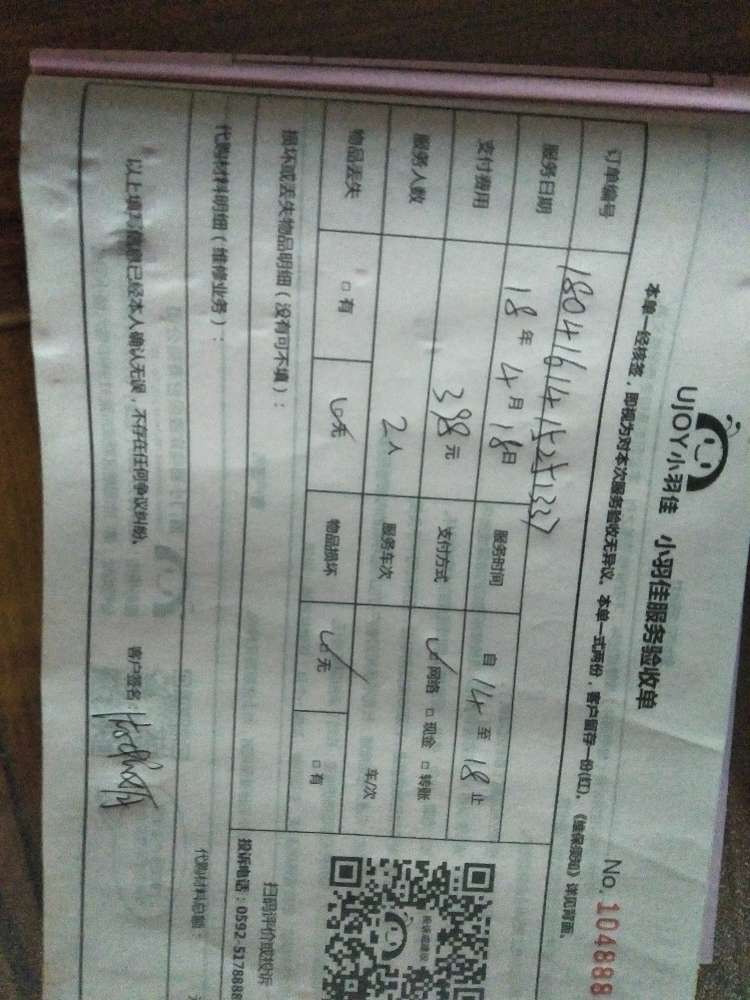 UJOY小羽佳 小羽佳服务验收单
No. 104888
本单一经核签，即视为对本次服务验收无异议。本单一式两份，客户留存一份(红)。《维保须知》详见背面。
订单编号
服务日期 18年 4月 18日 服务时间 自 14 至 18 止
支付费用 398元 支付方式 网络 □现金 □转账
服务人数 2人 服务车次 车/次
物品丢失 □有 无 物品损坏 无 □有
损坏或丢失物品明细（没有可不填）：
扫码评价或投诉
投诉电话：0592-5178888
代购材料明细（维修业务）：
代购材料总额：
以上填写信息已经本人确认无误，不存在任何争议纠纷。 客户签名：